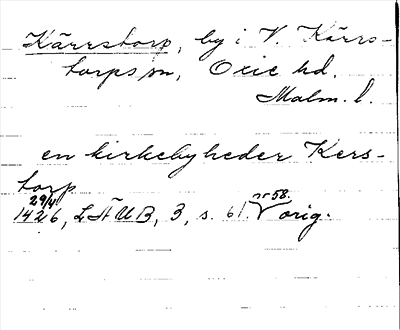 Kärrstorp, by i V. Kärrs-
torps sn, Oxie hd.
Malm. l.
en kirkebyheder Kers-
torp
29/4 1426, LÄUB, 3, s. 61. nr 58. V orig.